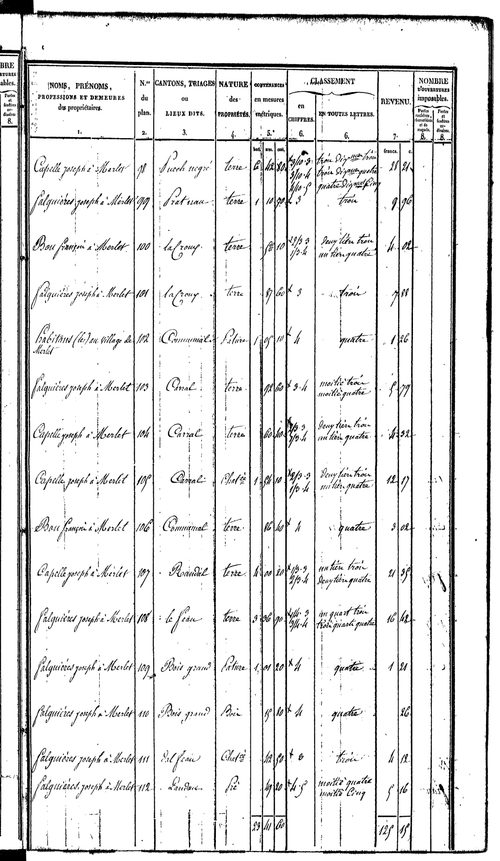 NOMS, PRÉNOMS,
PROFESSIONS ET DEMEURES
des propriétaires.
1.
N.os
du
plan.
2.
CANTONS, TRIAGES
ou
LIEUX DITS.
3.
NATURE
des
PROPRIÉTÉS.
4.
CONTENANCES
en mesures
métriques.
5.
CLASSEMENT
en
CHIFFRES.
6.
EN TOUTES LETTRES.
6.
REVENU.
7.
NOMBRE
D'OUVERTURES
imposables.
8.
8.
francs. c.
Capelle joseph à Merlet 98 Puech negré terre 6 42 80 3/10-3 trois dixmes trois 28 21
3/10-4
4/10-5 quatre dixmes cinq
falquières joseph à Merlet 99 Prat terre 1 10 70 3 trois 9 96
Bou françois à Merlet 100 la Croux terre 58 10 2/3-3 deux tiers trois 4 02
1/3-4 un tiers quatre
falquières joseph à Merlet 101 la Croux terre 87 60 3 trois 7 88
habitans (les) du village de 102 Communal Pature 1 05 10 4 quatre 1 26
Merlet
falquières joseph à Merlet 103 Carral terre 92 60 3-4 moitié trois 5 79
moitié quatre
Capelle joseph à Merlet 104 Carral terre 60 40 2/3-3 deux tiers trois 4 32
1/3-4 un tiers quatre
Capelle joseph à Merlet 105 Carral 1 54 10 2/3-3 deux tiers trois 12 17
1/3-4 un tiers quatre
Bou françois à Merlet 106 Communal terre 86 40 4 quatre 3 02
Capelle joseph à Merlet 107 terre 4 00 20 1/3-3 un tiers trois 21 35
2/3-4 deux tiers quatre
falquières joseph à Merlet 108 le feau terre 3 36 90 1/4-3 un quart trois 16 42
3/4-4 trois quarts quatre
falquières joseph à Merlet 109 Bois grand Pature 1 01 20 4 quatre 1 21
falquières joseph à Merlet 110 Bois grand Bois 15 80 4 quatre 26
falquières joseph à Merlet 111 del feau 42 50 3 trois 4 12
falquières joseph à Merlet 112 Pré 49 20 4-5 moitié quatre 5 16
moitié cinq
23 41 60 125 15